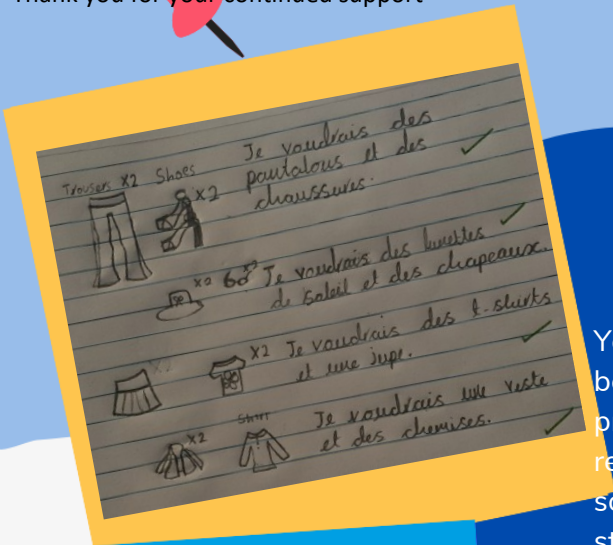 Thank you for your continued support
Trousers X2 Shoes X2
Je voudrais des
pantalous et des
chaussures.
x2
Je voudrais des lunettes
de soleil et des chapeaux.
X2
X2
Je voudrais des t-shirts
et une jupe.
x2
Shirt
Je voudrais une veste
et des chemises.